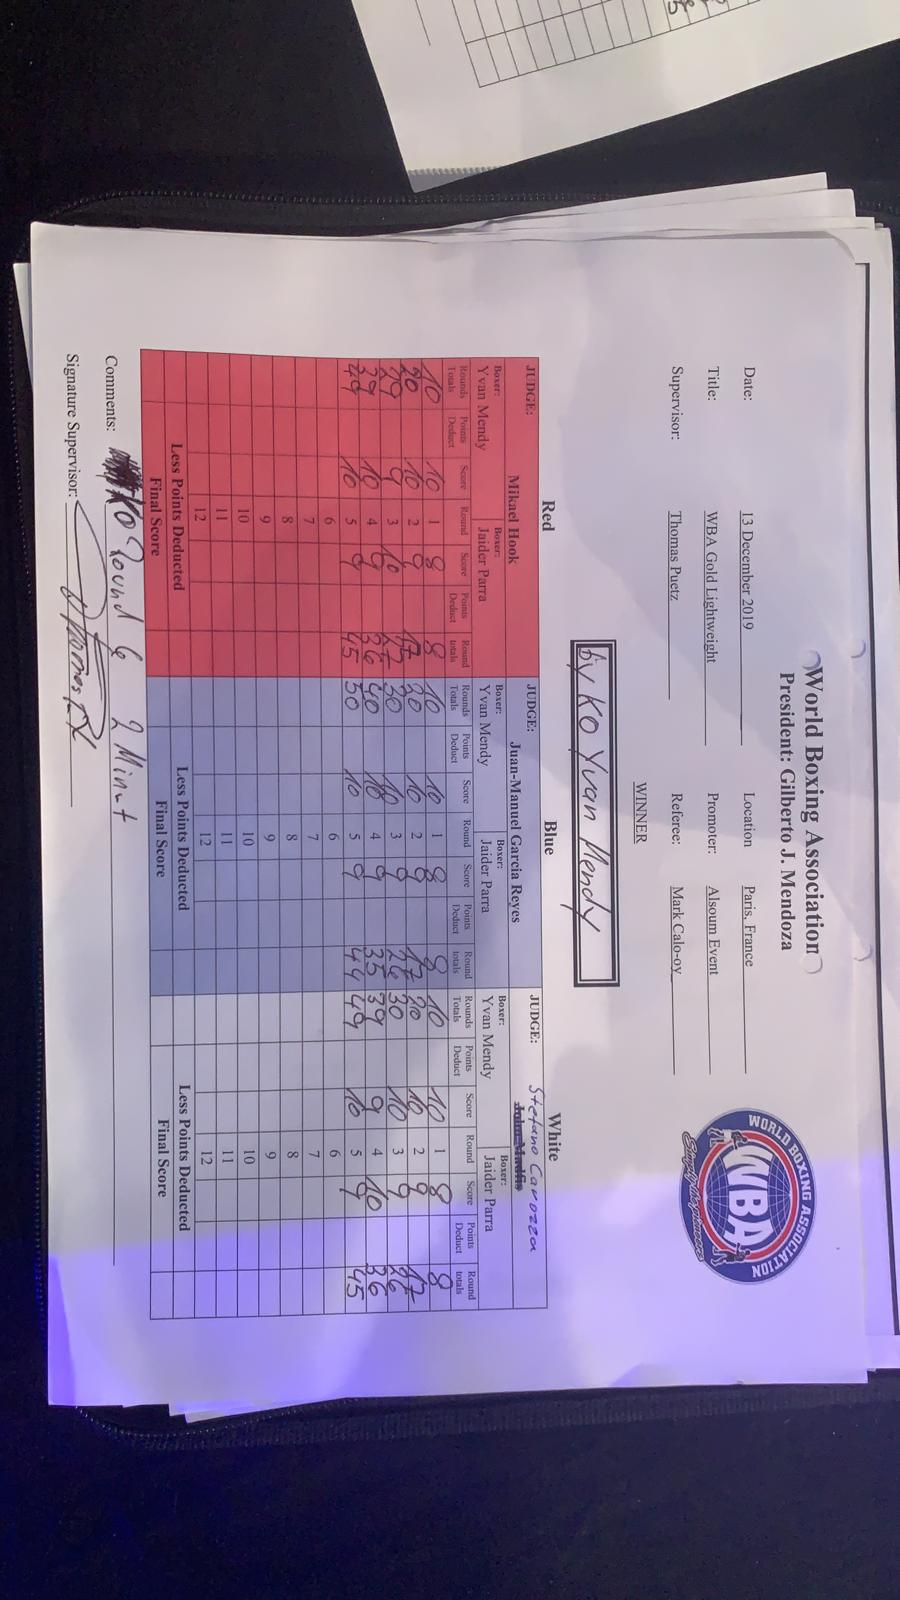 World Boxing Association
President: Gilberto J. Mendoza
Date: 13 December 2019 Location Paris, France
Title: WBA Gold Lightweight Promoter: Alsoum Event
Supervisor: Thomas Puetz Referee: Mark Calo-oy
WORLD BOXING ASSOCIATION
WBA
Simply the pioneers
WINNER
by KO Yvan Mendy
Red Blue White
JUDGE: Mikael Hook JUDGE: Juan-Manuel Garcia Reyes JUDGE: Stefano Carozza
Boxer: Yvan Mendy Boxer: Jaider Parra Boxer: Yvan Mendy Boxer: Jaider Parra Boxer: Yvan Mendy Boxer: Jaider Parra
Rounds Totals Points Deduct Score Round Score Points Deduct Round totals Rounds Totals Points Deduct Score Round Score Points Deduct Round totals Rounds Totals Points Deduct Score Round Score Points Deduct Round totals
10 10 1 8 8 10 10 1 8 8 10 10 1 8 8
20 10 2 9 17 20 10 2 9 17 20 10 2 9 17
29 9 3 10 27 30 10 3 9 26 30 10 3 9 26
39 10 4 9 36 40 10 4 9 35 39 9 4 10 36
49 10 5 9 45 50 10 5 9 44 49 10 5 9 45
6 6 6
7 7 7
8 8 8
9 9 9
10 10 10
11 11 11
12 12 12
Less Points Deducted Less Points Deducted Less Points Deducted
Final Score Final Score Final Score
Comments: KO Round 6 2 Minut
Signature Supervisor: